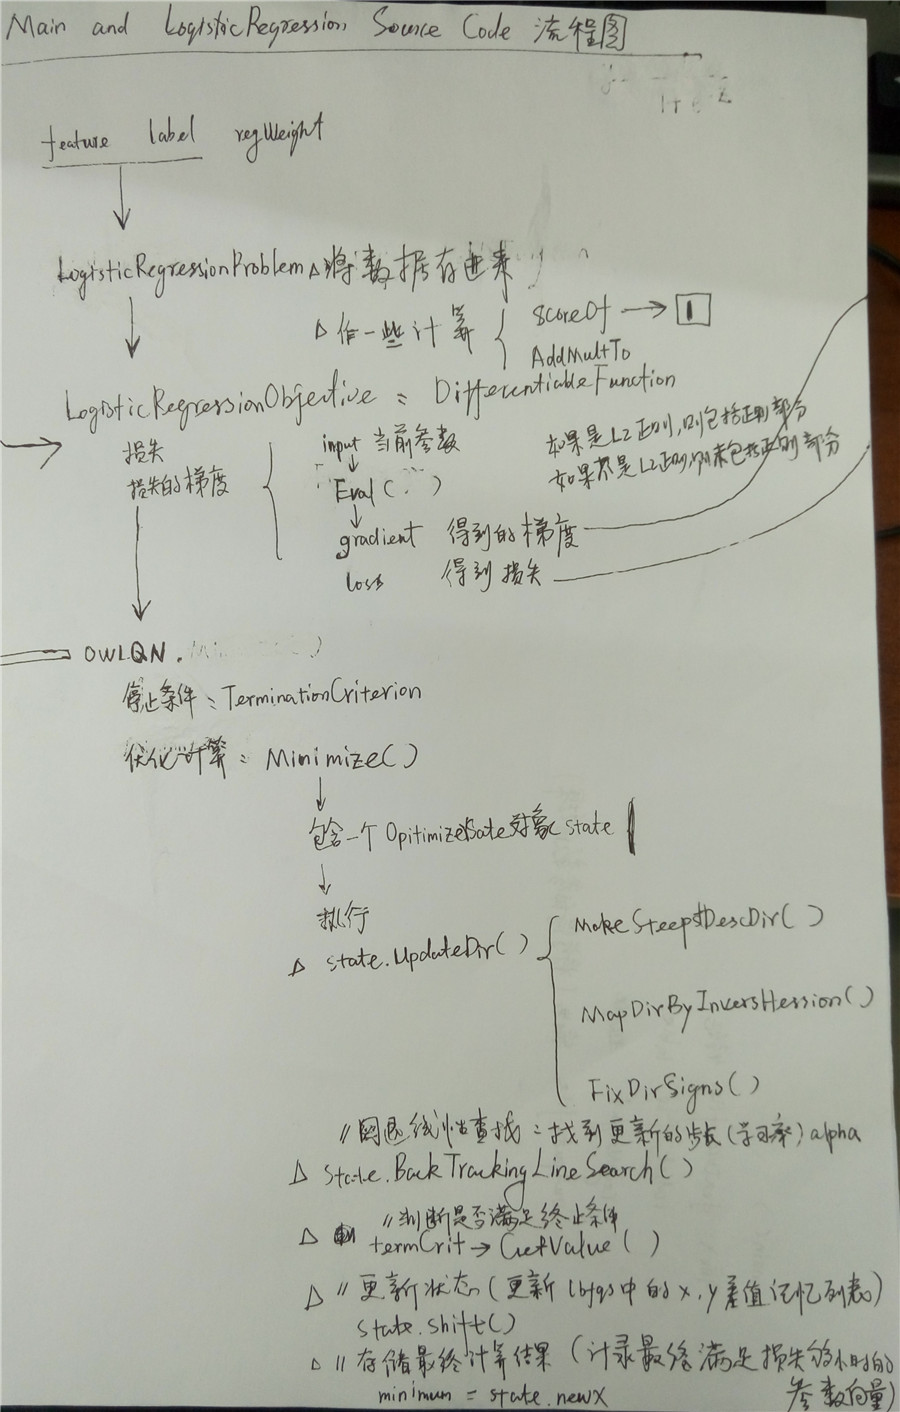 Main and LogisticRegression Source Code 流程图
feature label regWeight
LogisticRegressionProblem △将数据存进来
△作一些计算 { ScoreOf → 1
AddMultTo
LogisticRegressionObjective : DifferentiableFunction
损失
损失的梯度
input 当前参数
如果是L2正则,则包括正则部分
如果不是L2正则,则未包括正则部分
Eval( . )
gradient 得到的梯度
loss 得到损失
OWLQN.
停止条件: TerminationCriterion
优化计算: Minimize()
包含一个OpitimizeSate对象state
执行
△ state.UpdateDir() { MakeSteepstDescDir()
MapDirByInversHession()
FixDirSigns()
//回退线性查找:找到更新的步长(学习率)alpha
△ state.BackTrackingLineSearch()
//判断是否满足终止条件
△ termCrit → GetValue()
△ //更新状态(更新lbfgs中的x,y差值记忆列表)
state.shift()
△ //存储最终计算结果(计录最终满足损失够小时的
参数向量)
minimum = state.newx